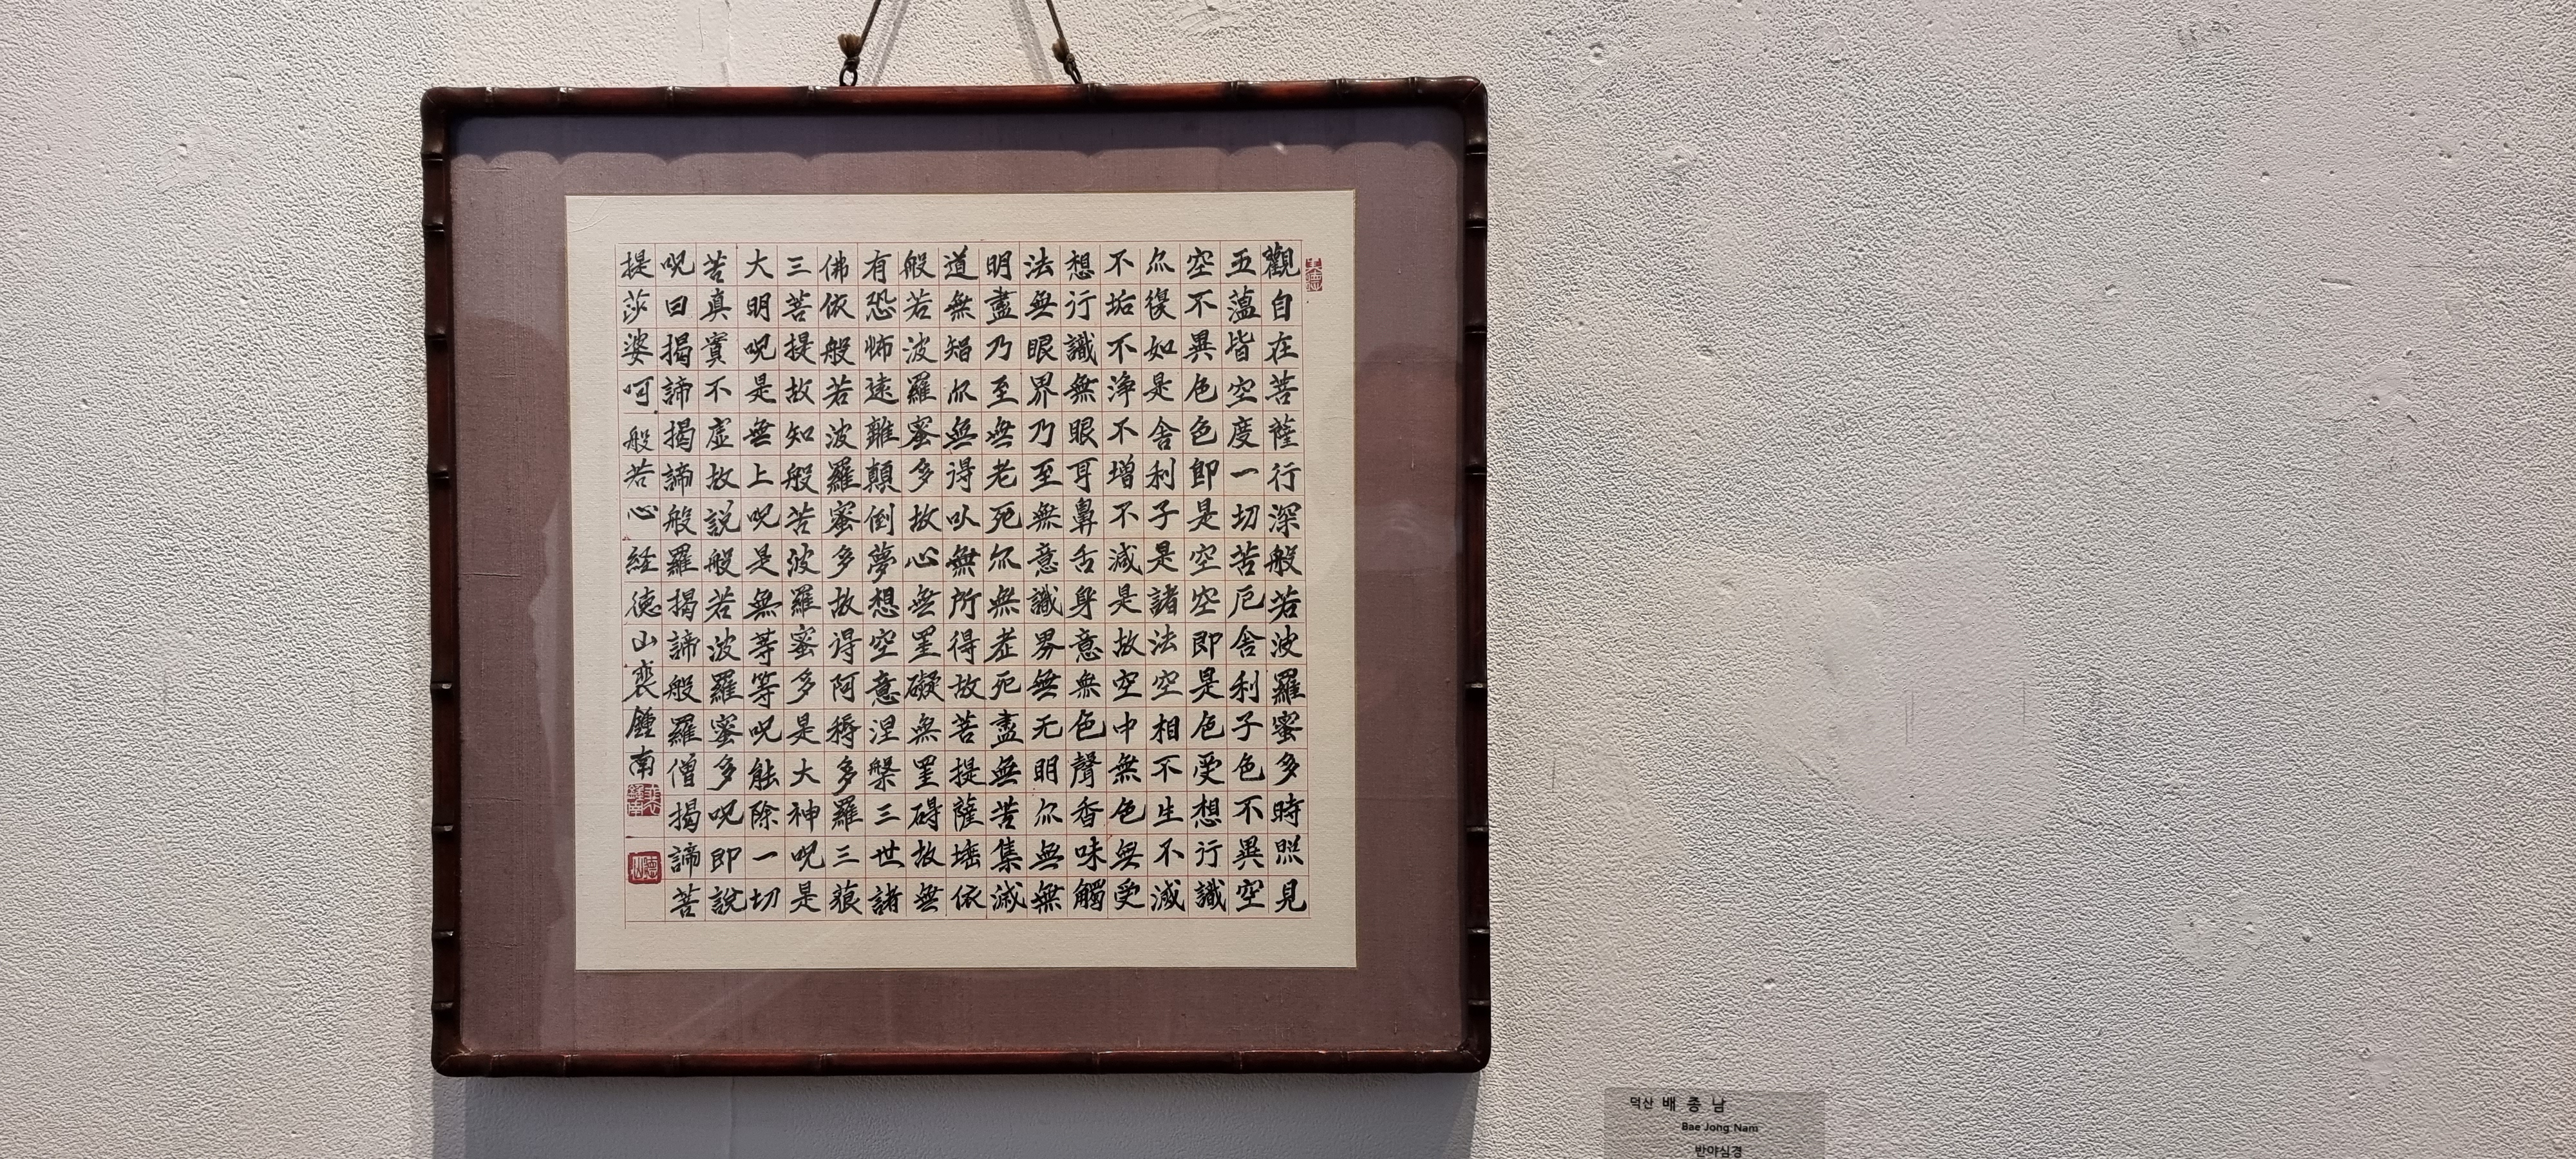 觀自在菩薩行深般若波羅蜜多時照見
五蘊皆空度一切苦厄舍利子色不異空
空不異色色即是空空即是色受想行識
亦復如是舍利子是諸法空相不生不滅
不垢不淨不增不減是故空中無色無受
想行識無眼耳鼻舌身意無色聲香味觸
法無眼界乃至無意識界無无明亦無無
明盡乃至無老死亦無老死盡無苦集滅
道無智亦無得以無所得故菩提薩埵依
般若波羅蜜多故心無罣礙無罣碍故無
有恐怖遠離顛倒夢想空意涅槃三世諸
佛依般若波羅蜜多故得阿耨多羅三藐
三菩提故知般若波羅蜜多是大神呪是
大明呪是無上呪是無等等呪能除一切
苦真實不虛故說般若波羅蜜多呪即說
呪曰揭諦揭諦般羅揭諦般羅僧揭諦菩
提莎婆呵般若心経德山裵鍾南
덕산 배 종 남
Bae Jong Nam
반야심경